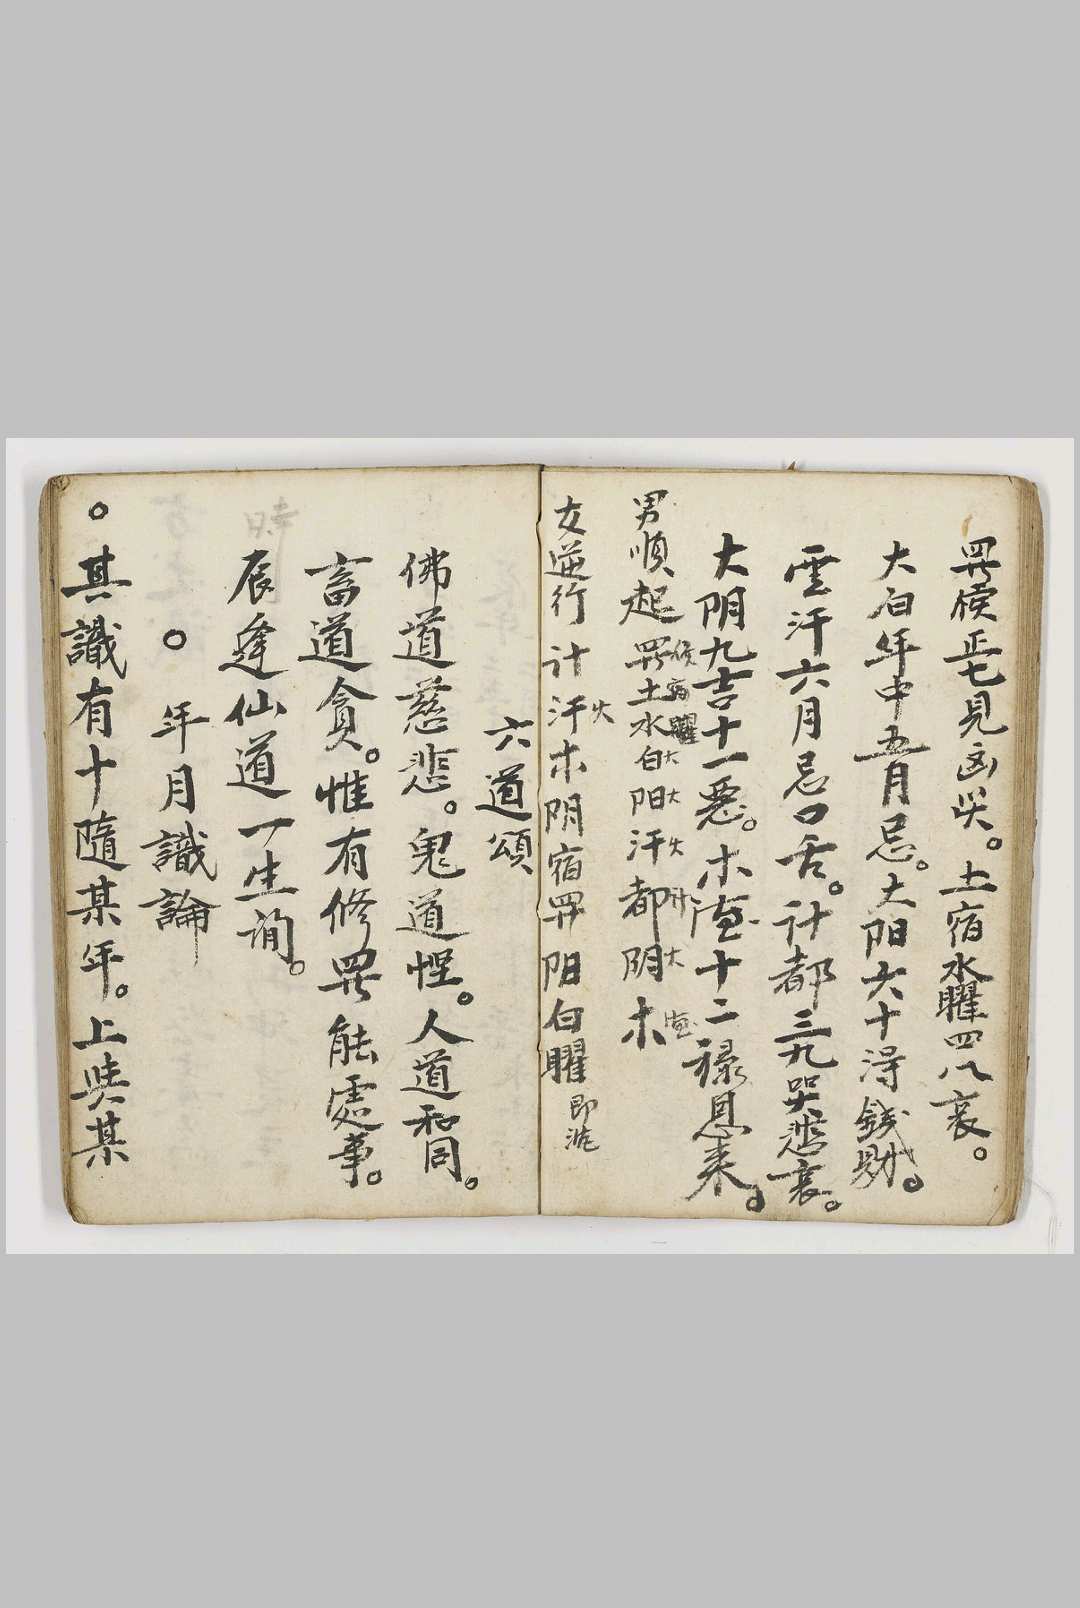 羅睺正七見凶災。土宿水曜四八哀。
太白年中五月忌。太阳六十淂錢財。
雲汗六月忌口舌。计都三九哭悲哀。
太阴九吉十一惡。木德十二禄恩来。
男順起 罗睺土宿水曜白太阳太汗火都计阴太木德
女逆行 计汗火木阴宿罗阳白曜
六道頌
佛道慈悲。鬼道惺。人道和同。
畜道貪。惟有修羅能處事。
辰逢仙道一生
○ 年月識論
○其識有十隨某年。上些某